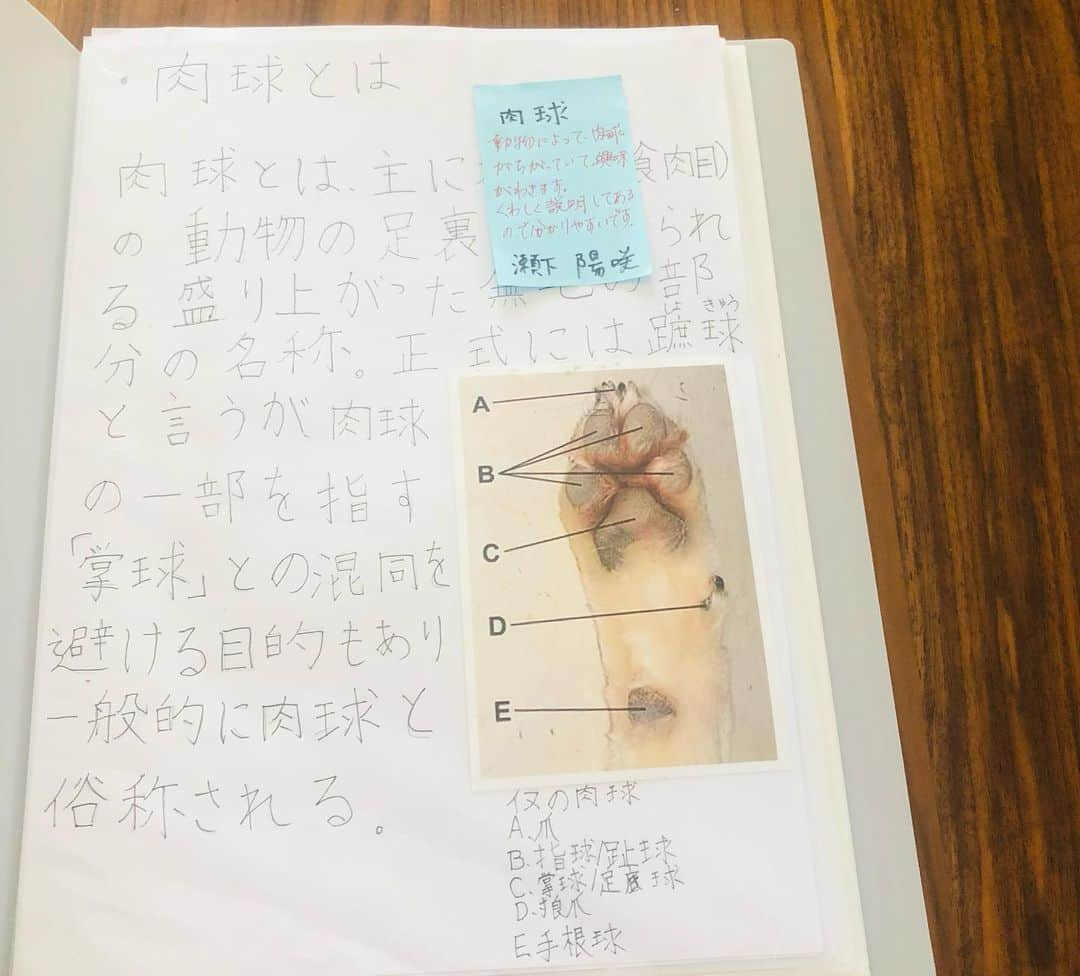 ・肉球とは
肉球とは、主に 食肉目)
の動物の足裏 られ
る盛り上がった無毛の部
はきゅう
分の名称。正式には蹠球
と言うが肉球
の一部を指す
「掌球」との混同を
避ける目的もあり
一般的に肉球と
俗称される。
肉球
動物によって、肉球に
がちがっていて、興味
がわきます。
くわしく説明してある
ので分かりやすいです。
瀬下 陽咲
A
B
C
D
E
イヌの肉球
A.爪
B.指球/趾球
C.掌球/足底球
D.狼爪
E.手根球